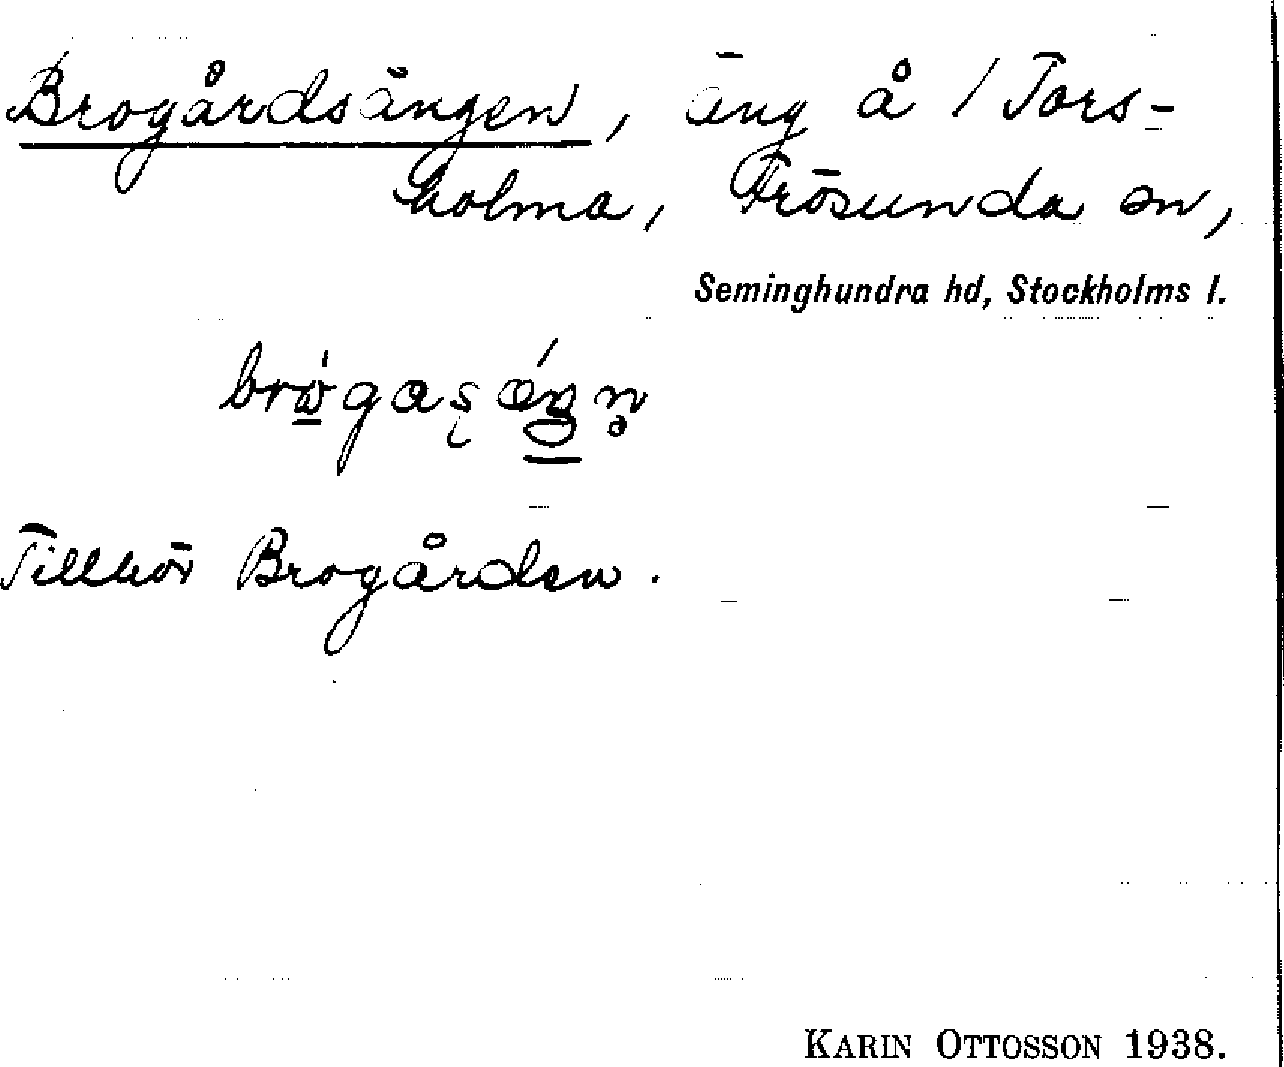 Brogårdsängen, äng å / Tors-
holma, Frösunda sn,
Seminghundra hd, Stockholms l.
Tillhör Brogården.
KARIN OTTOSSON 1938.